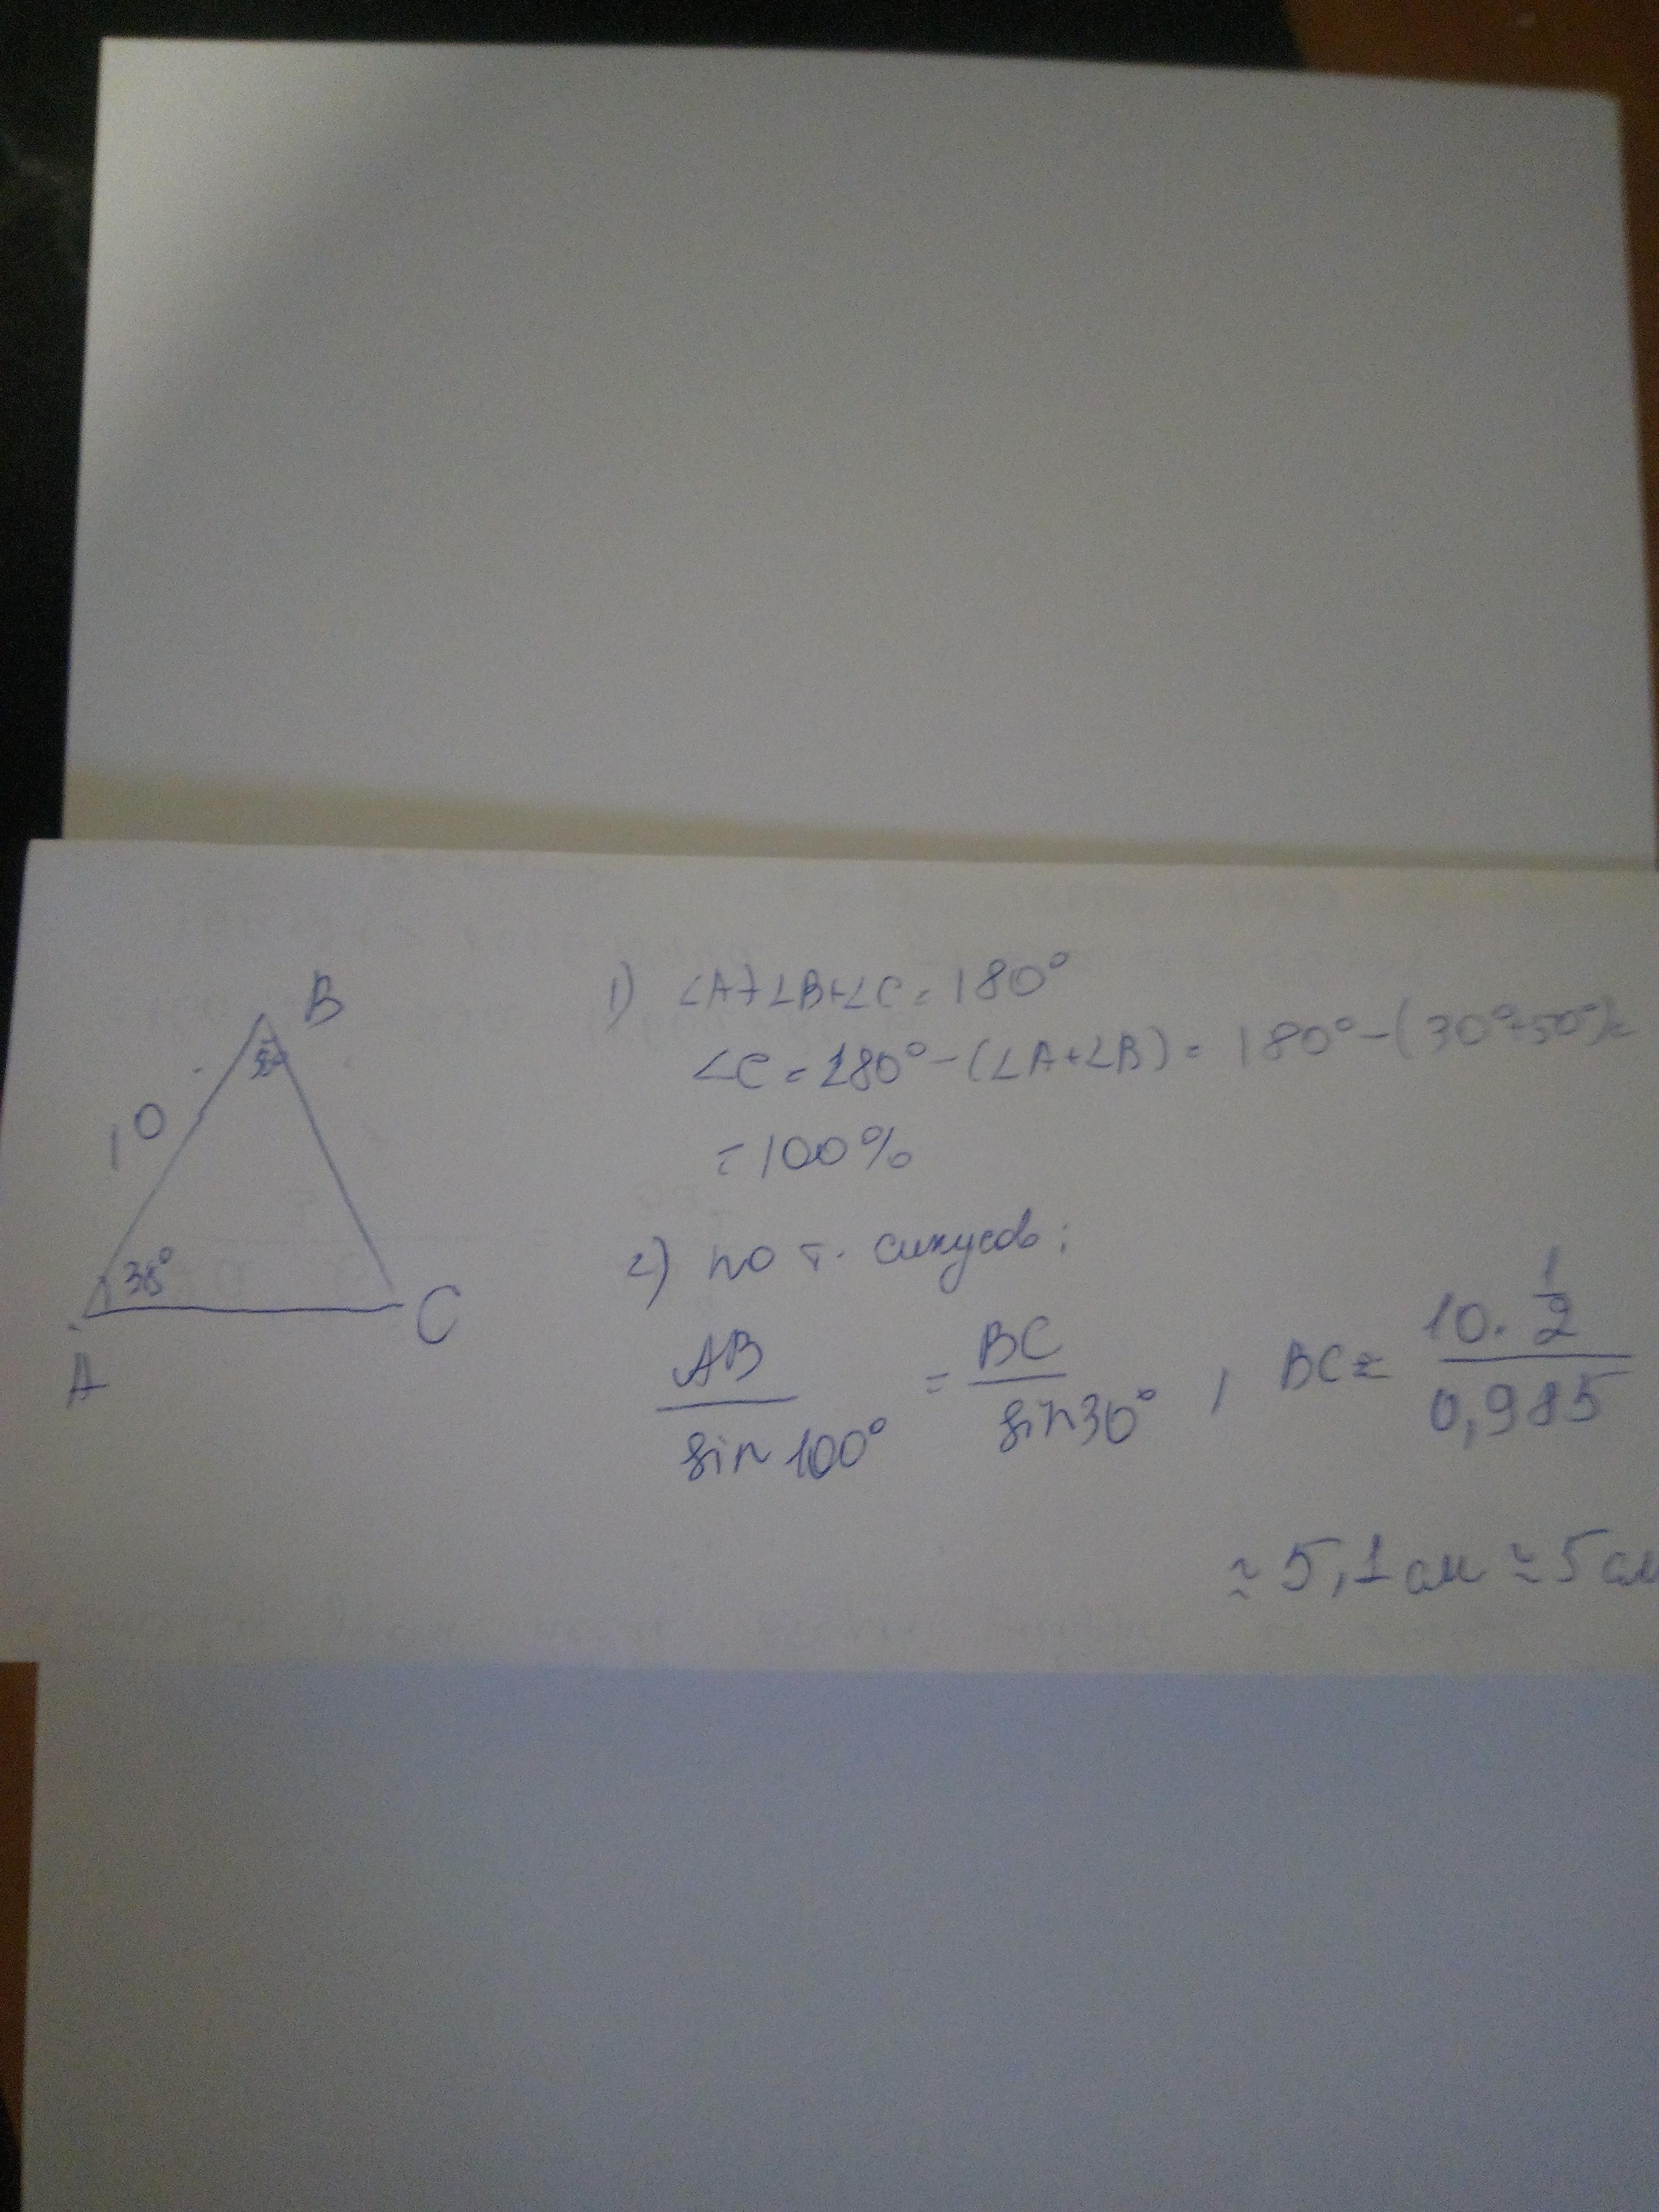 B
10
30°
A
C
1) ∠A+∠B+∠C=180°
∠C=180°-(∠A+∠B)=180°-(30°+50°)=
=100%
2) по т. синусов:
AB/sin100° = BC/sin30° , BC= 10·1/2 / 0,985
≈5,1 см ≈5 см